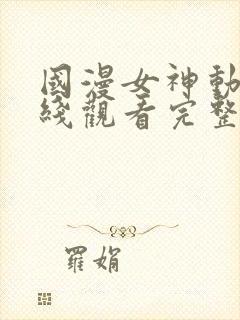 國漫女神動
綫觀看完整
羅娟